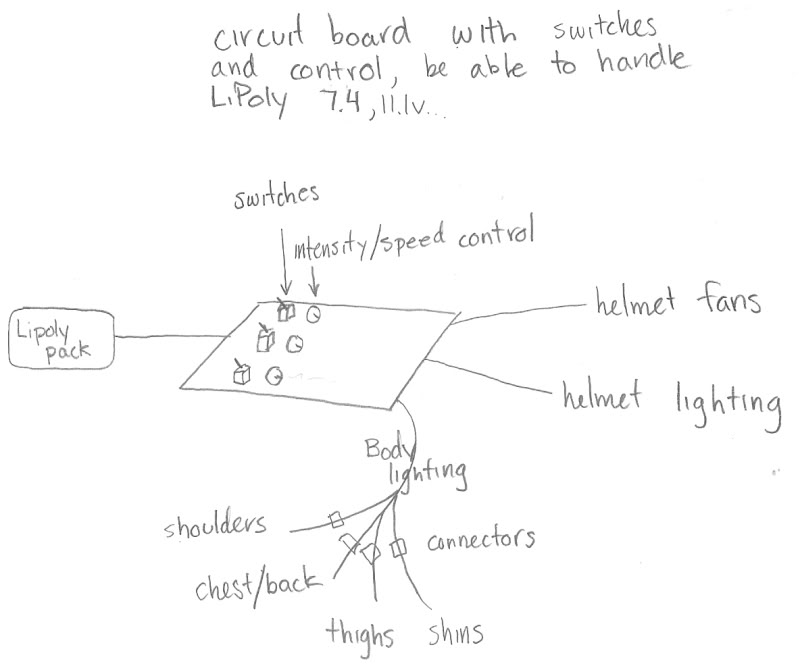 circuit board with switches
and control, be able to handle
LiPoly 7.4, 11.1v...
switches
intensity/speed control
Lipoly
pack
helmet fans
helmet lighting
Body
lighting
shoulders
connectors
chest/back
thighs
shins